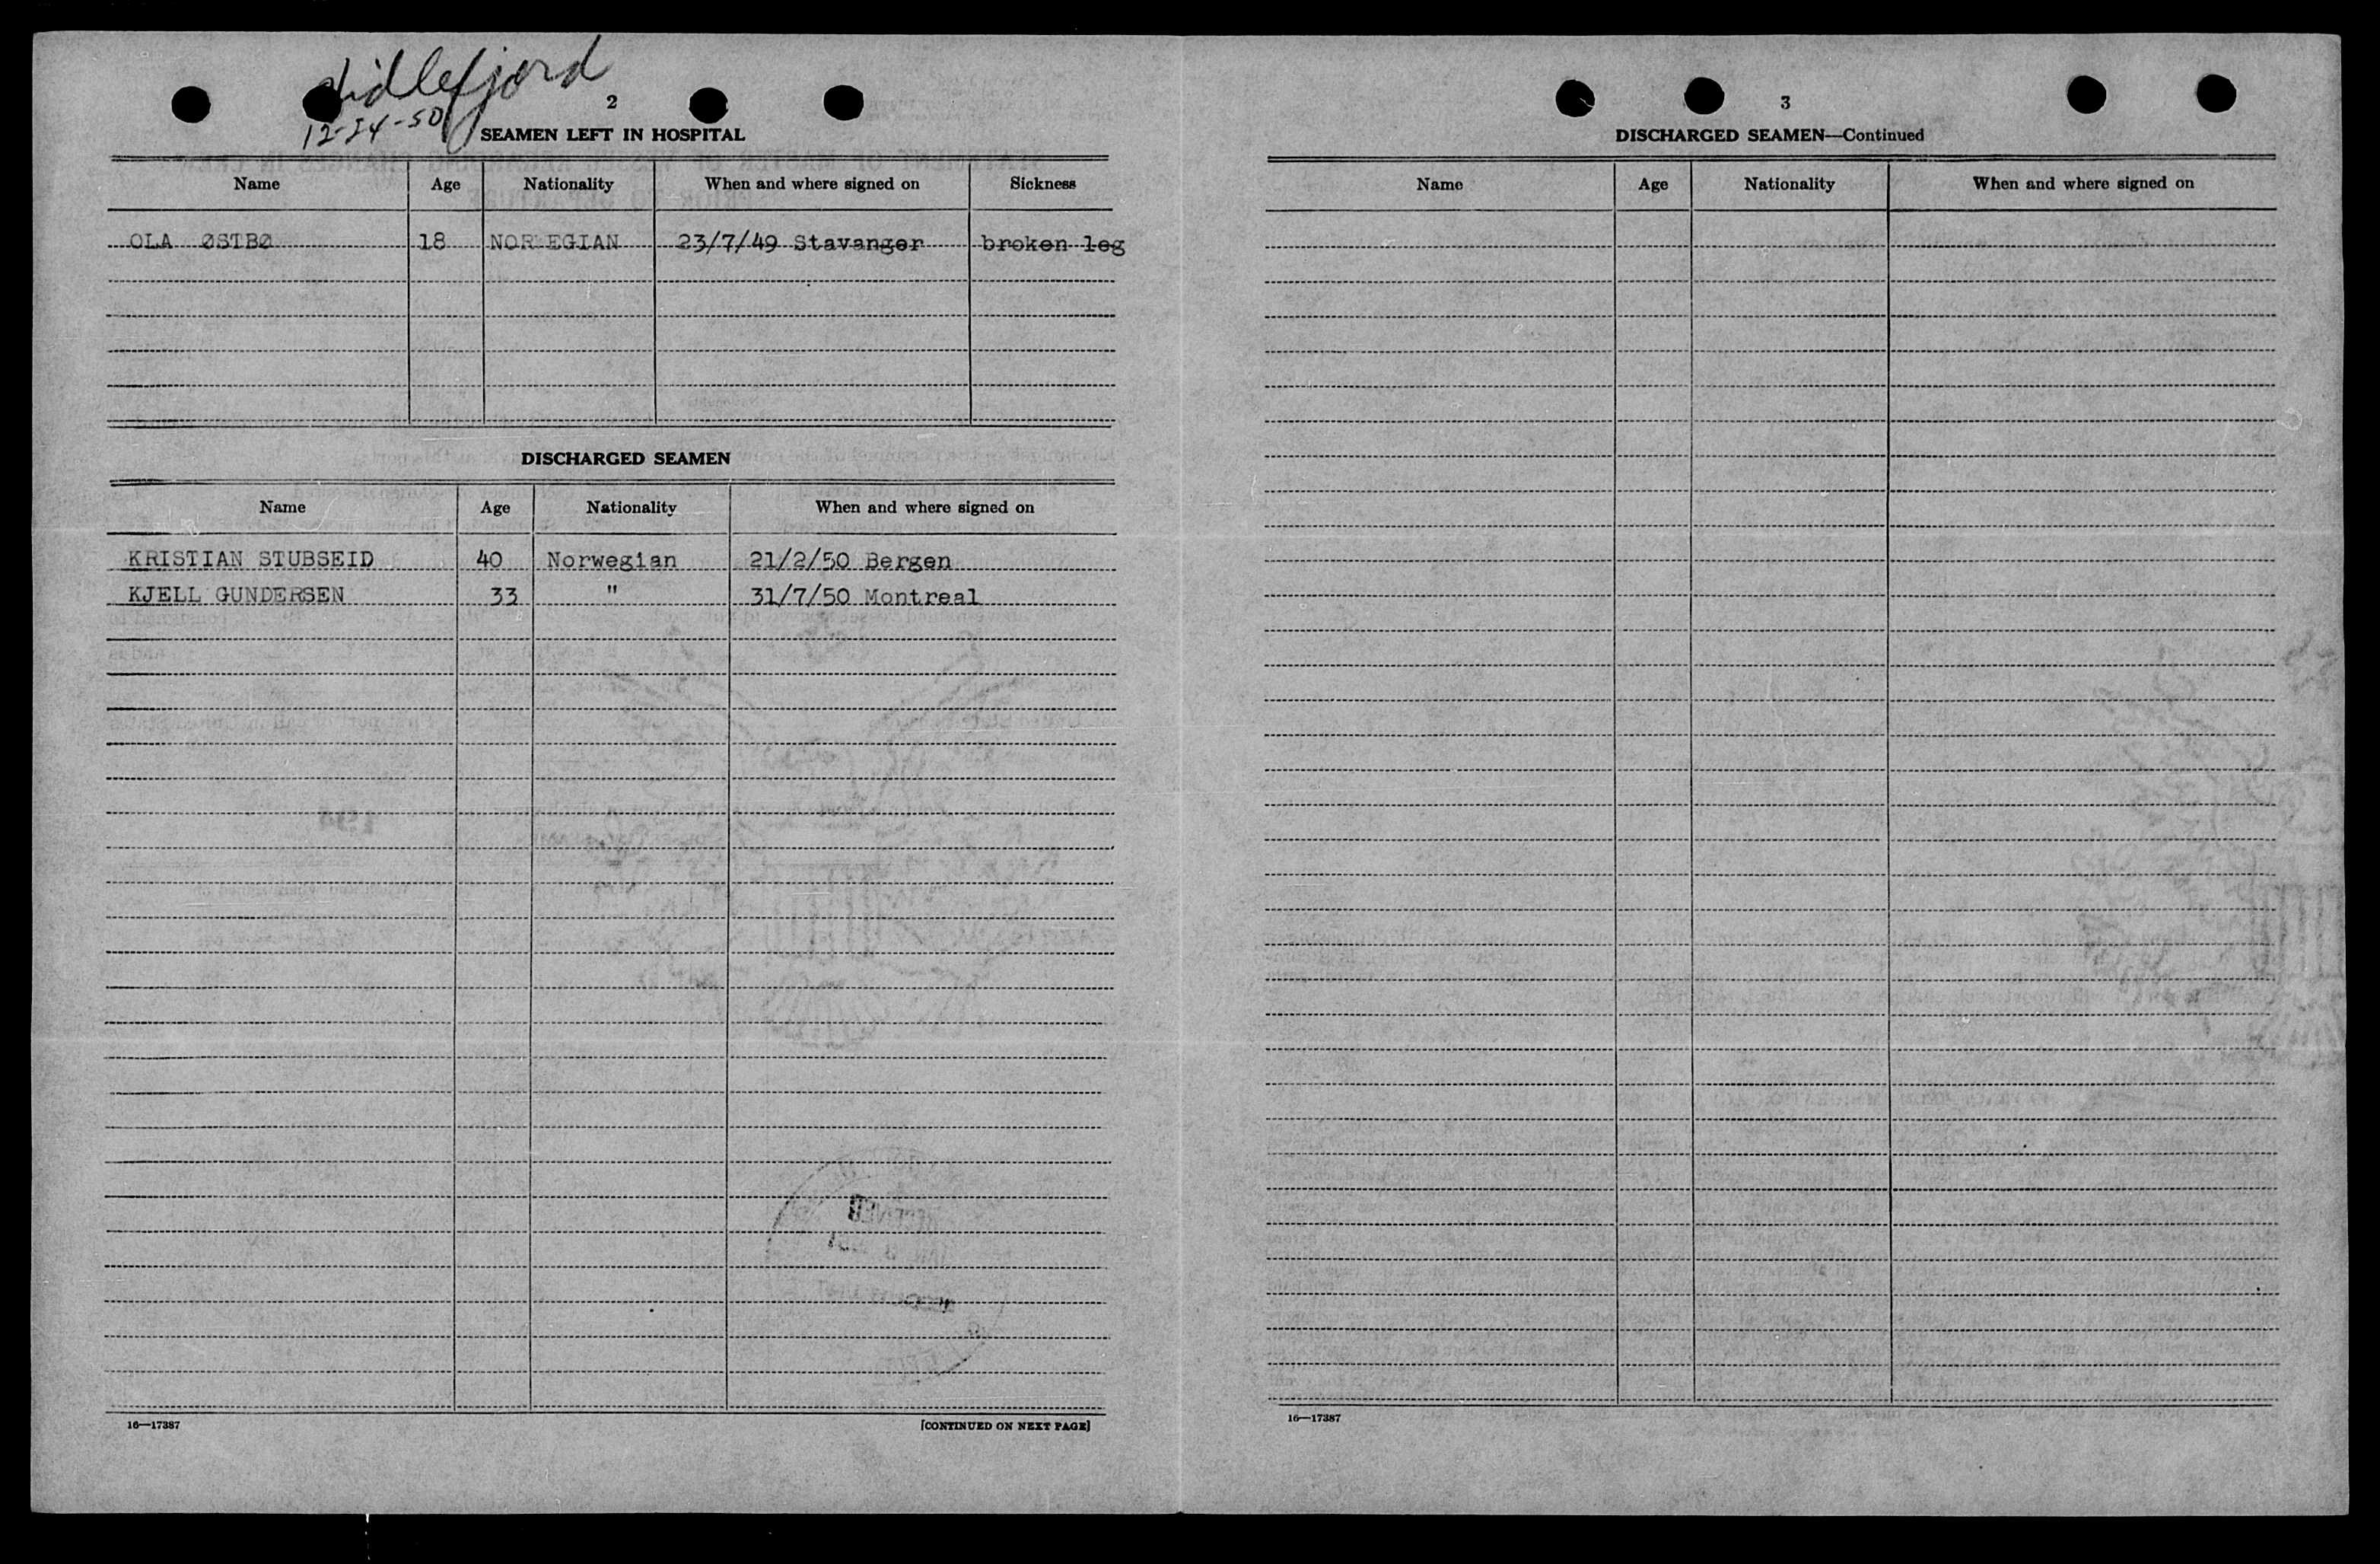 Lidlefjord
12-24-50
2
SEAMEN LEFT IN HOSPITAL
Name Age Nationality When and where signed on Sickness
OLA ØSTBØ 18 NORWEGIAN 23/7/49 Stavanger broken leg
DISCHARGED SEAMEN
Name Age Nationality When and where signed on
KRISTIAN STUBSEID 40 Norwegian 21/2/50 Bergen
KJELL GUNDERSEN 33 " 31/7/50 Montreal
16—17387 [CONTINUED ON NEXT PAGE]
3
DISCHARGED SEAMEN—Continued
Name Age Nationality When and where signed on
16—17387